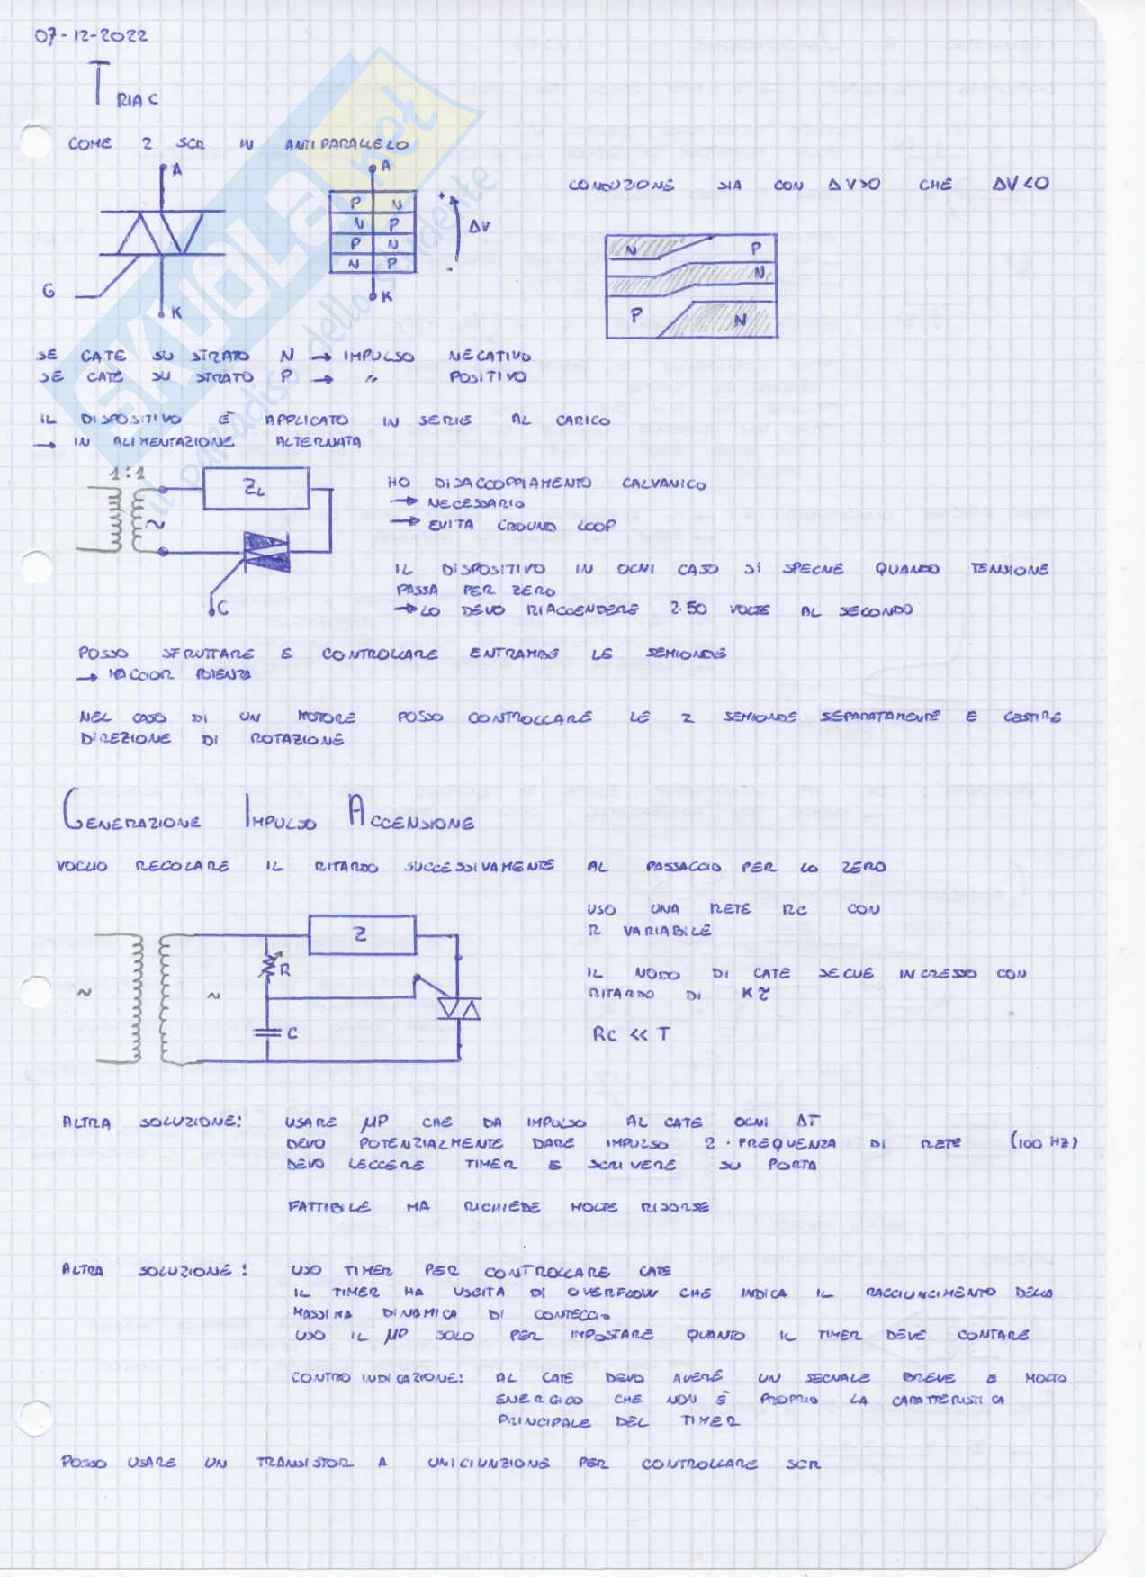 07-12-2022
TRIAC
COME 2 SCR IN ANTIPARALLELO
A
A
CONDUZIONE SIA CON ΔV>0 CHE ΔV<0
P N
N P
P N
N P
+
ΔV
-
N P
N
P N
G
K
K
SE GATE SU STRATO N → IMPULSO NEGATIVO
SE GATE SU STRATO P → " POSITIVO
IL DISPOSITIVO È APPLICATO IN SERIE AL CARICO
→ IN ALIMENTAZIONE ALTERNATA
1:1
ZL
~
G
HO DISACCOPPIAMENTO GALVANICO
→ NECESSARIO
→ EVITA GROUND LOOP
IL DISPOSITIVO IN OGNI CASO SI SPEGNE QUANDO TENSIONE
PASSA PER ZERO
→ LO DEVO RIACCENDERE 2·50 VOLTE AL SECONDO
POSSO SFRUTTARE E CONTROLLARE ENTRAMBE LE SEMIONDE
→ MAGGIOR POTENZA
NEL CASO DI UN MOTORE POSSO CONTROLLARE LE 2 SEMIONDE SEPARATAMENTE E GESTIRE
DIREZIONE DI ROTAZIONE
GENERAZIONE IMPULSO ACCENSIONE
VOGLIO REGOLARE IL RITARDO SUCCESSIVAMENTE AL PASSAGGIO PER LO ZERO
Z
R
~
~
C
USO UNA RETE RC CON
R VARIABILE
IL NODO DI GATE SEGUE INGRESSO CON
RITARDO DI Kτ
RC << T
ALTRA SOLUZIONE: USARE μP CHE DA IMPULSO AL GATE OGNI ΔT
DEVO POTENZIALMENTE DARE IMPULSO 2·FREQUENZA DI RETE (100 Hz)
DEVO LEGGERE TIMER E SCRIVERE SU PORTA
FATTIBILE MA RICHIEDE MOLTE RISORSE
ALTRA SOLUZIONE: USO TIMER PER CONTROLLARE GATE
IL TIMER HA USCITA DI OVERFLOW CHE INDICA IL RAGGIUNGIMENTO DELLA
MASSIMA DINAMICA DI CONTEGGIO
USO IL μP SOLO PER IMPOSTARE QUANTO IL TIMER DEVE CONTARE
CONTROINDICAZIONE: AL GATE DEVO AVERE UN SEGNALE BREVE E MOLTO
ENERGICO CHE NON È PROPRIO LA CARATTERISTICA
PRINCIPALE DEL TIMER
POSSO USARE UN TRANSISTOR A UNIGIUNZIONE PER CONTROLLARE SCR
SKUOLA.net
il paradiso dello studente